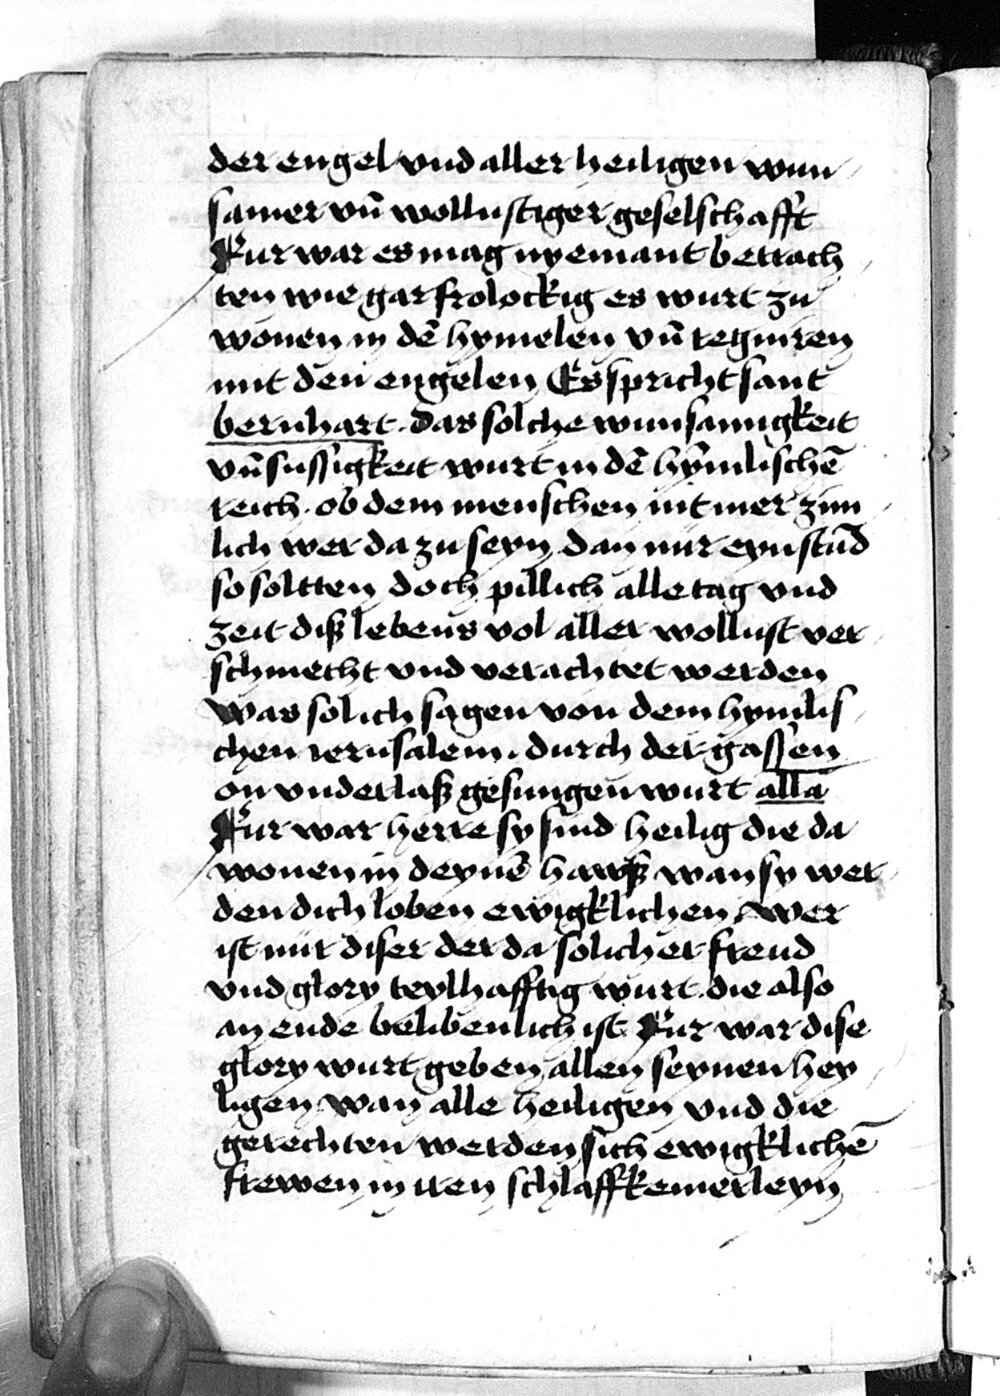 der engel vnd aller heiligen wun
samer vn̄ wollustiger geselschafft
Fur war es mag nyemant betrach
ten wie gar frolockig es wurt zu
wonen in dē hymelen vn̄ regniren
mit den engelen Es spricht sant
bernhart. das solche wunsamigkeit
vn̄ sussigkeit wurt in dē hymlischē
reich. ob dem menschen nit mer zim
lich wer da zu seyn dan nur eyn stūd
so soltten doch pillich alle tag vnd
zeit diß lebens vol aller wollust ver
schmecht vnd verachtet werden
Was sol ich sagen von dem hymlis
chen ierusalem. durch der gassen
on vnderlaß gesungen wurt alla
Fur war herre sy sind heilig die da
wonen in deynē hawß wan sy wer
den dich loben ewigklichen Wer
ist nur diser der da solicher freud
vnd glory teylhafftig wurt. die also
an ende belibenlich ist Fur war dise
glory wurt geben allen seynen hey
ligen wan alle heiligen vnd die
gerechten werden sich ewigklichē
frewen in iren schlaffkemerleyn